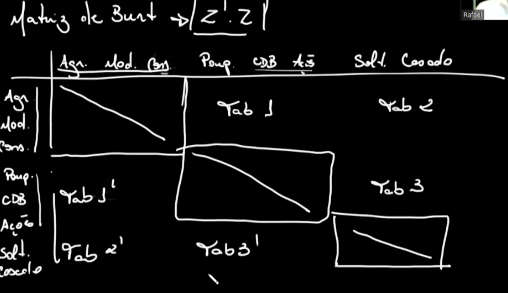 Matriz de Burt → |Z'.Z|
Agr. Mod. Cons. Poup. CDB Ações Solt. Casado
Agr
Mod.
Cons.
Tab 1 Tab 2
Poup.
CDB
Ações
Tab 1' Tab 3
Solt.
Casado
Tab 2' Tab 3'
Rafael